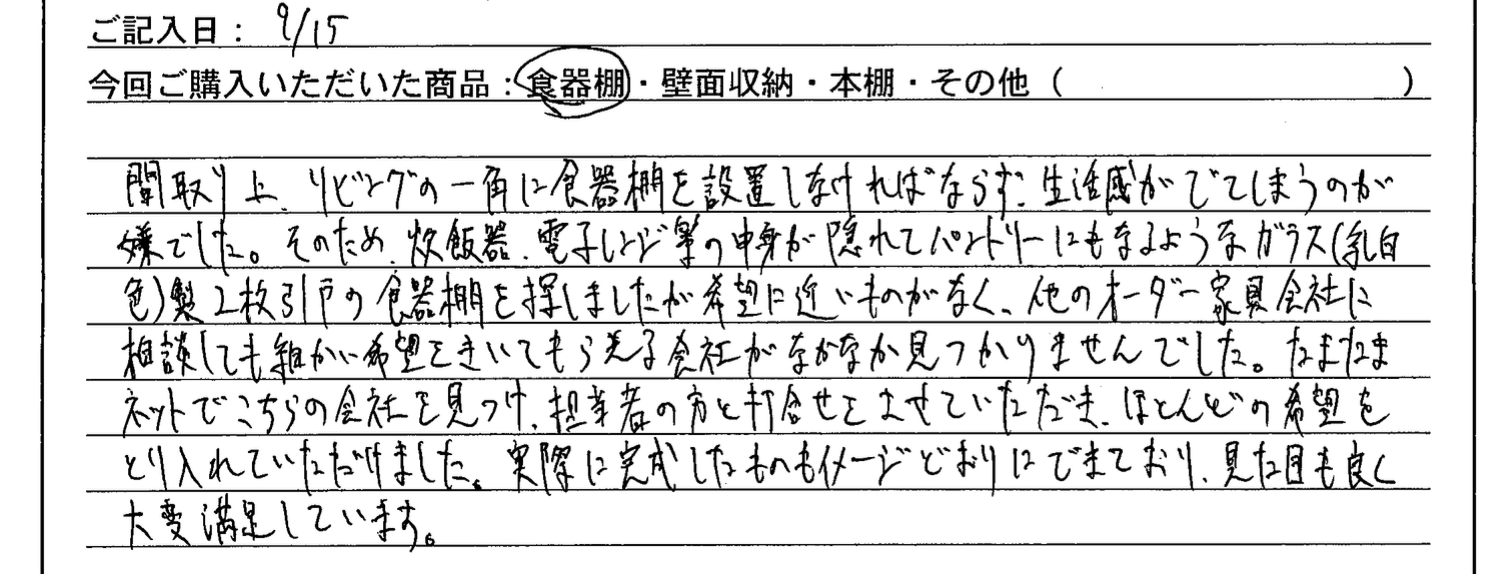 ご記入日： 9/15
今回ご購入いただいた商品：食器棚・壁面収納・本棚・その他（　　　　　　　　）
間取り上、リビングの一角に食器棚を設置しなければならず、生活感がでてしまうのが
嫌でした。そのため、炊飯器、電子レンジ等の中身が隠れてパントリーにもなるようなガラス(乳白
色)製2枚引戸の食器棚を探しましたが希望に近いものがなく、他のオーダー家具会社に
相談しても細かい希望をきいてもらえる会社がなかなか見つかりませんでした。たまたま
ネットでこちらの会社を見つけ、担当者の方と打合せをさせていただき、ほとんどの希望を
とり入れていただけました。実際に完成したものもイメージどおりにできており、見た目も良く
大変満足しています。